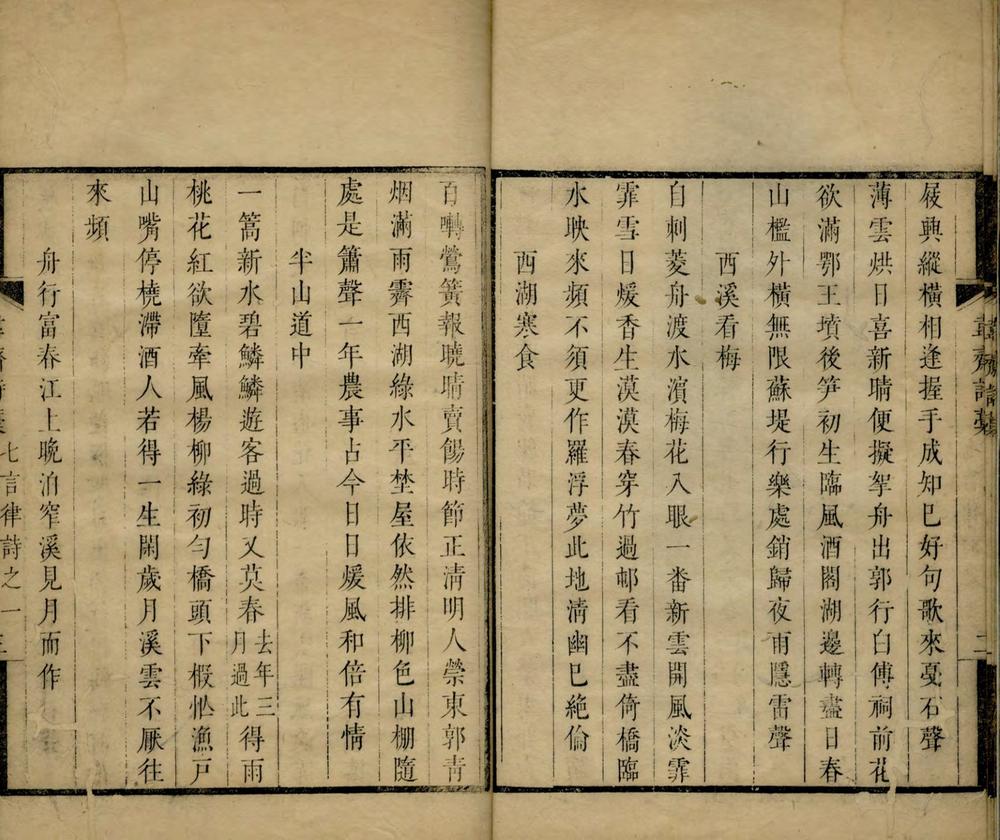 屐興縱橫相逢握手成知巳好句歌來戞石聲
薄雲烘日喜新晴便擬拏舟出郭行白傅祠前花
欲滿鄂王墳後笋初生臨風酒閣湖邊轉盡日春
山檻外橫無限蘇堤行樂處銷歸夜雨隱雷聲
西溪看梅
自刺菱舟渡水濵梅花入眼一番新雲開風淡霏
霏雪日煖香生漠漠春穿竹過邨看不盡倚橋臨
水映來頻不須更作羅浮夢此地清幽巳絶倫
西湖寒食
百囀鶯簧報曉晴賣餳時節正清明人縈東郭青
烟滿雨霽西湖綠水平埜屋依然排柳色山棚隨
處是簫聲一年農事占今日日煖風和倍有情
半山道中
一篙新水碧鱗鱗遊客過時又莫春去年三月過此得雨
桃花紅欲墮牽風楊柳綠初勻橋頭下椴怂漁戸
山嘴停橈滯酒人若得一生閑歲月溪雲不厭往
來頻
舟行富春江上晩泊窄溪見月而作
七言律詩之一